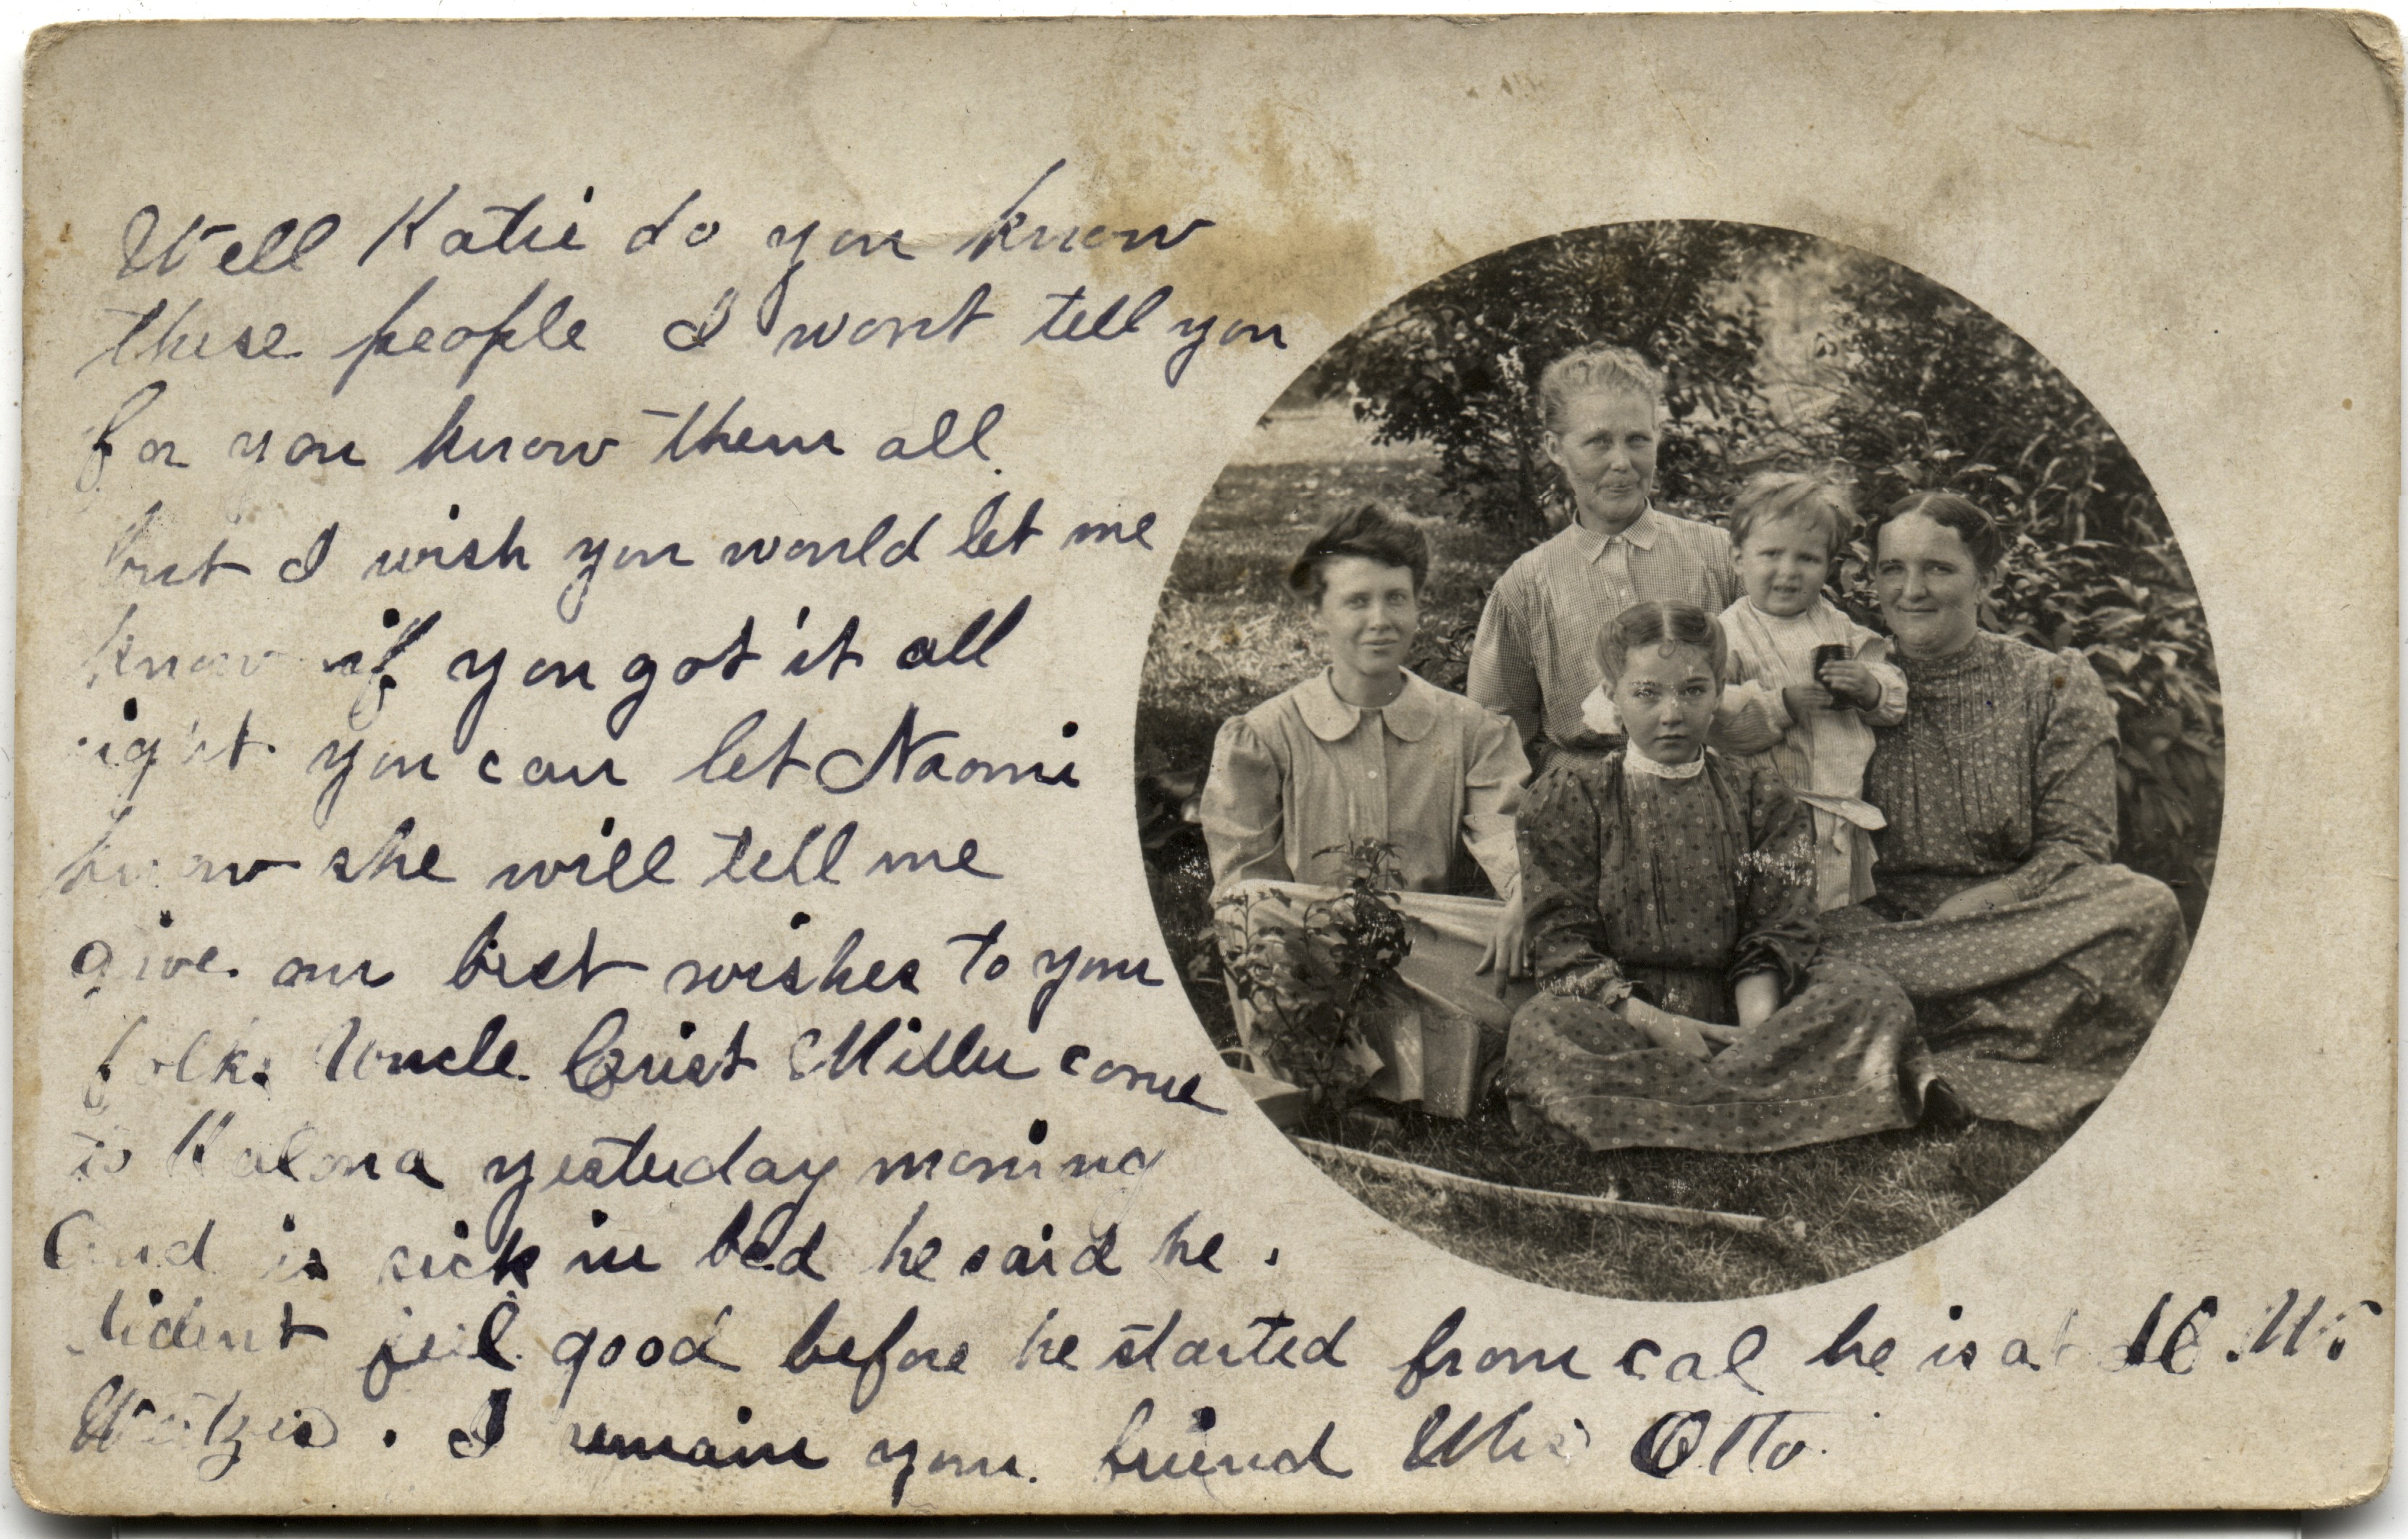 Well Katie do you know
these people I wont tell you
for you know them all.
but I wish you would let me
know if you got it all
right you can let Naomi
know she will tell me
give our best wishes to your
folks Uncle Crist Miller come
to Kalona yesterday morning
and is sick in bed he said he
dident feel good before he started from cal he is at
I remain your friend Otto.